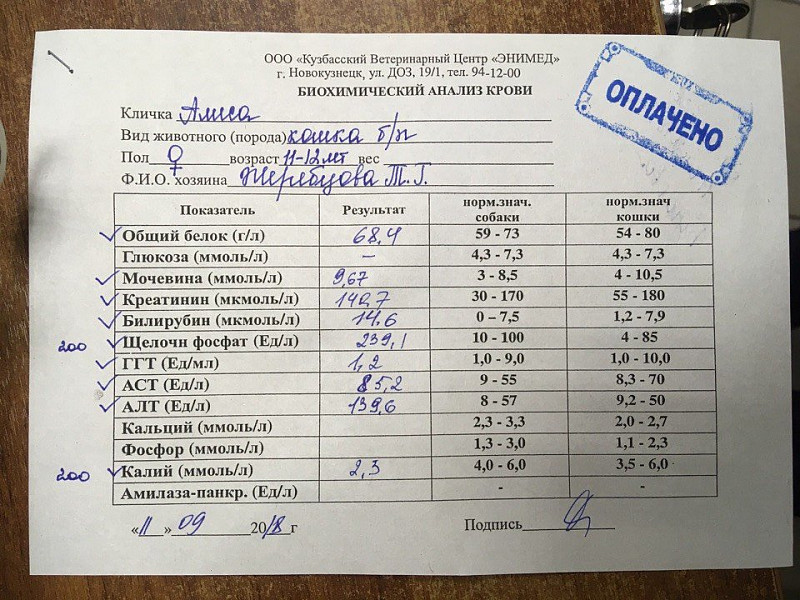 ООО «Кузбасский Ветеринарный Центр «ЭНИМЕД»
г. Новокузнецк, ул. ДОЗ, 19/1, тел. 94-12-00
БИОХИМИЧЕСКИЙ АНАЛИЗ КРОВИ
ОПЛАЧЕНО
Кличка Алиса
Вид животного (порода) кошка б/п
Пол ♀ возраст 11-12 лет вес
Ф.И.О. хозяина Жеребцова Т.Г.
Показатель Результат норм.знач. собаки норм.знач кошки
Общий белок (г/л) 68,4 59 - 73 54 - 80
Глюкоза (ммоль/л) – 4,3 - 7,3 4,3 - 7,3
Мочевина (ммоль/л) 9,67 3 - 8,5 4 - 10,5
Креатинин (мкмоль/л) 140,7 30 - 170 55 - 180
Билирубин (мкмоль/л) 14,6 0 – 7,5 1,2 - 7,9
200 Щелочн фосфат (Ед/л) 239,1 10 - 100 4 - 85
ГГТ (Ед/мл) 1,2 1,0 - 9,0 1,0 - 10,0
АСТ (Ед/л) 85,2 9 - 55 8,3 - 70
АЛТ (Ед/л) 139,6 8 - 57 9,2 - 50
Кальций (ммоль/л) 2,3 - 3,3 2,0 - 2,7
Фосфор (ммоль/л) 1,3 - 3,0 1,1 - 2,3
200 Калий (ммоль/л) 2,3 4,0 - 6,0 3,5 - 6,0
Амилаза-панкр. (Ед/л) - -
«11» 09 2018 г Подпись